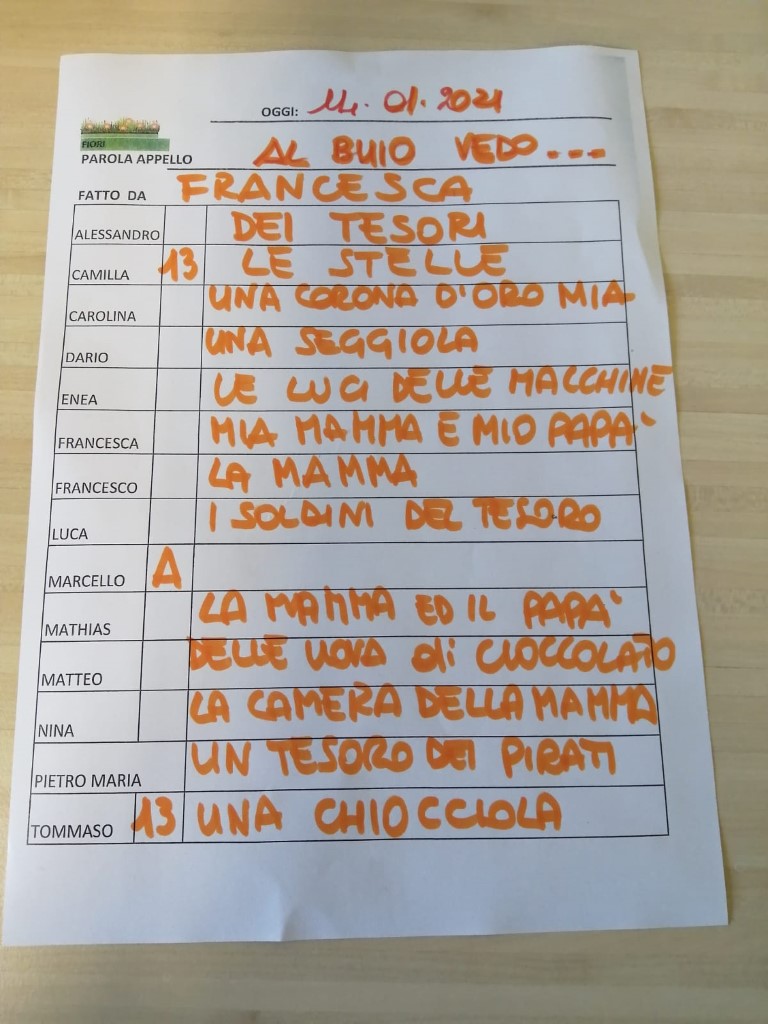 OGGI: 14.01.2021
FIORI
PAROLA APPELLO AL BUIO VEDO...
FATTO DA FRANCESCA
ALESSANDRO DEI TESORI
CAMILLA 13 LE STELLE
CAROLINA UNA CORONA D'ORO MIA
DARIO UNA SEGGIOLA
ENEA LE LUCI DELLE MACCHINE
FRANCESCA MIA MAMMA E MIO PAPA'
FRANCESCO LA MAMMA
LUCA I SOLDINI DEL TESORO
MARCELLO A
MATHIAS LA MAMMA ED IL PAPA'
MATTEO DELLE UOVA di CIOCCOLATO
NINA LA CAMERA DELLA MAMMA
PIETRO MARIA UN TESORO DEI PIRATI
TOMMASO 13 UNA CHIOCCIOLA